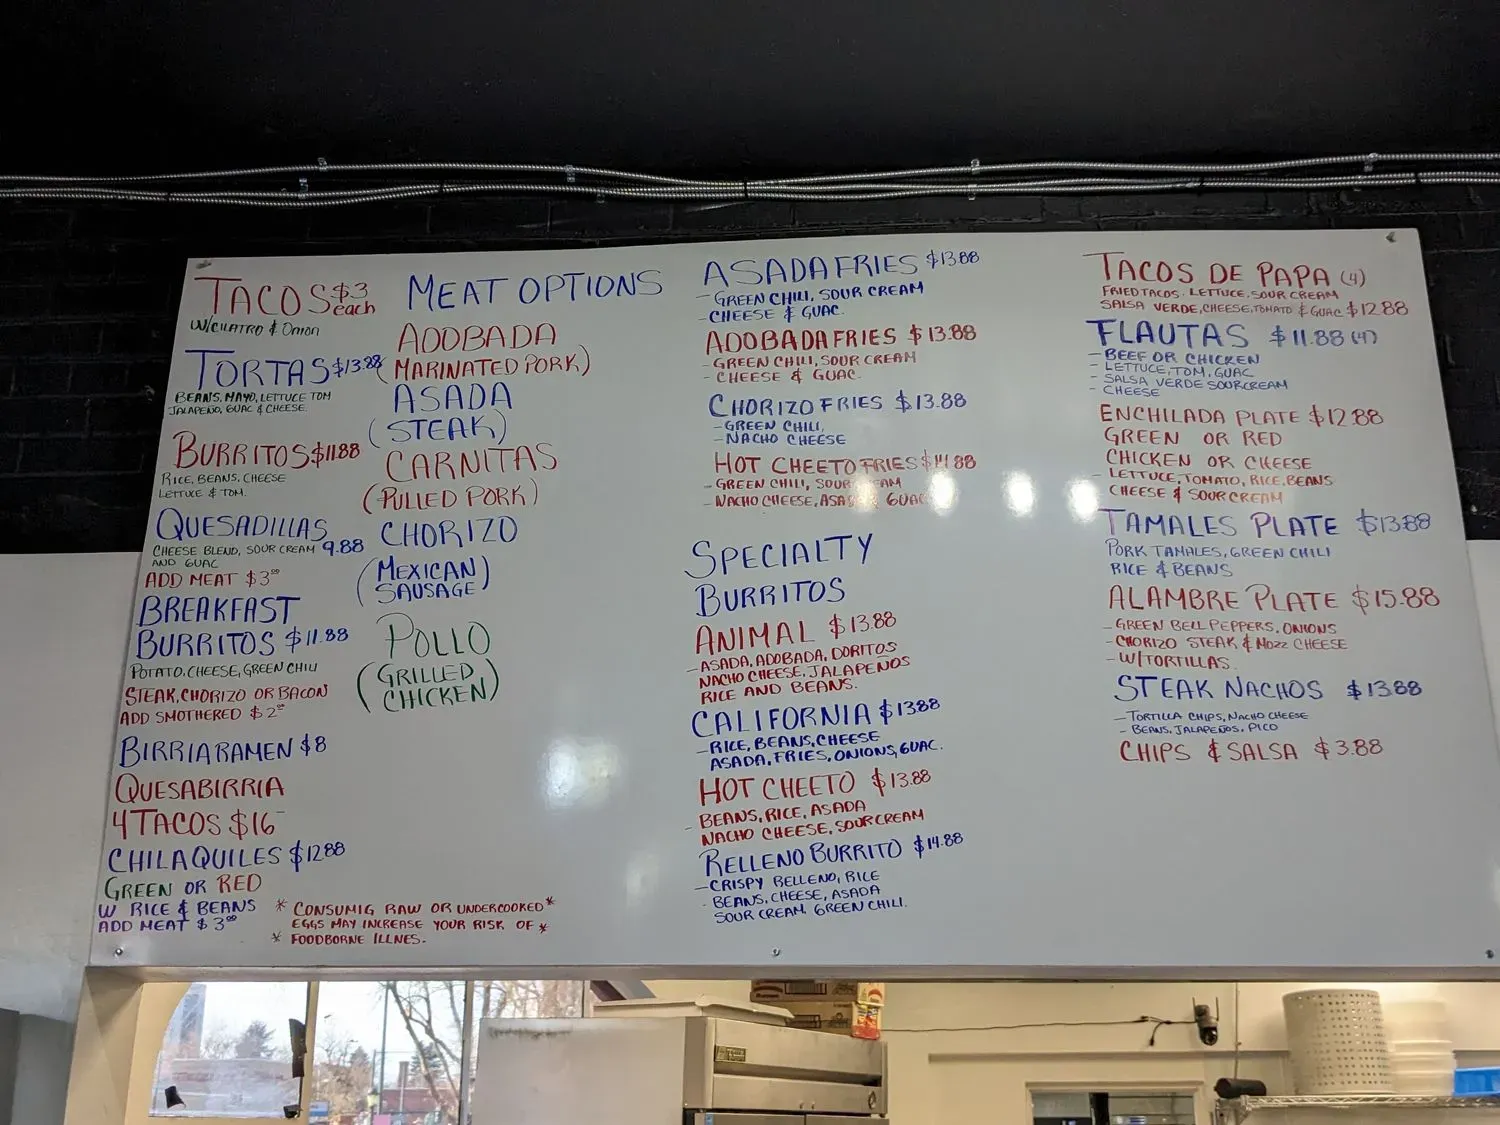 TACOS $3 each
W/CILATRO & ONION
TORTAS $13.88
BEANS, MAYO, LETTUCE TOM
JALAPEÑO, GUAC & CHEESE.
BURRITOS $11.88
RICE, BEANS, CHEESE
LETTUCE & TOM.
QUESADILLAS
CHEESE BLEND, SOUR CREAM 9.88
AND GUAC
ADD MEAT $3.00
BREAKFAST
BURRITOS $11.88
POTATO, CHEESE, GREEN CHILI
STEAK, CHORIZO OR BACON
ADD SMOTHERED $2.00
BIRRIA RAMEN $8
QUESABIRRIA
4 TACOS $16
CHILAQUILES $12.88
GREEN OR RED
W RICE & BEANS
ADD MEAT $3.00
MEAT OPTIONS
ADOBADA
(MARINATED PORK)
ASADA
(STEAK)
CARNITAS
(PULLED PORK)
CHORIZO
(MEXICAN
SAUSAGE)
POLLO
(GRILLED
CHICKEN)
* CONSUMIG RAW OR UNDERCOOKED *
EGGS MAY INCREASE YOUR RISK OF *
* FOODBORNE ILLNES.
ASADA FRIES $13.88
- GREEN CHILI, SOUR CREAM
- CHEESE & GUAC.
ADOBADA FRIES $13.88
- GREEN CHILI, SOUR CREAM
- CHEESE & GUAC.
CHORIZO FRIES $13.88
- GREEN CHILI,
- NACHO CHEESE
HOT CHEETO FRIES $14.88
- GREEN CHILI, SOUR CREAM
- NACHO CHEESE, ASADA & GUAC
SPECIALTY
BURRITOS
ANIMAL $13.88
- ASADA, ADOBADA, DORITOS
NACHO CHEESE, JALAPEÑOS
RICE AND BEANS.
CALIFORNIA $13.88
- RICE, BEANS, CHEESE
ASADA, FRIES, ONIONS, GUAC.
HOT CHEETO $13.88
- BEANS, RICE, ASADA
NACHO CHEESE, SOUR CREAM
RELLENO BURRITO $14.88
- CRISPY RELLENO, RICE
- BEANS, CHEESE, ASADA
SOUR CREAM, GREEN CHILI.
TACOS DE PAPA (4)
FRIED TACOS. LETTUCE, SOUR CREAM
SALSA VERDE, CHEESE, TOMATO & GUAC $12.88
FLAUTAS $11.88 (4)
- BEEF OR CHICKEN
- LETTUCE, TOM, GUAC
- SALSA VERDE SOUR CREAM
- CHEESE
ENCHILADA PLATE $12.88
GREEN OR RED
CHICKEN OR CHEESE
- LETTUCE, TOMATO, RICE, BEANS
CHEESE & SOUR CREAM
TAMALES PLATE $13.88
PORK TAMALES, GREEN CHILI
RICE & BEANS
ALAMBRE PLATE $15.88
- GREEN BELL PEPPERS, ONIONS
- CHORIZO STEAK & MOZZ CHEESE
- W/TORTILLAS.
STEAK NACHOS $13.88
- TORTILLA CHIPS, NACHO CHEESE
- BEANS, JALAPEÑOS, PICO
CHIPS & SALSA $3.88